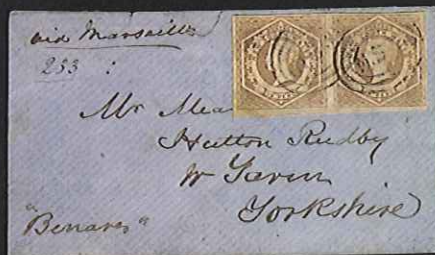 via Marseilles
233 :
Mr Mea
Hutton Rudby
Nr Yarm
Yorkshire
"Benares"